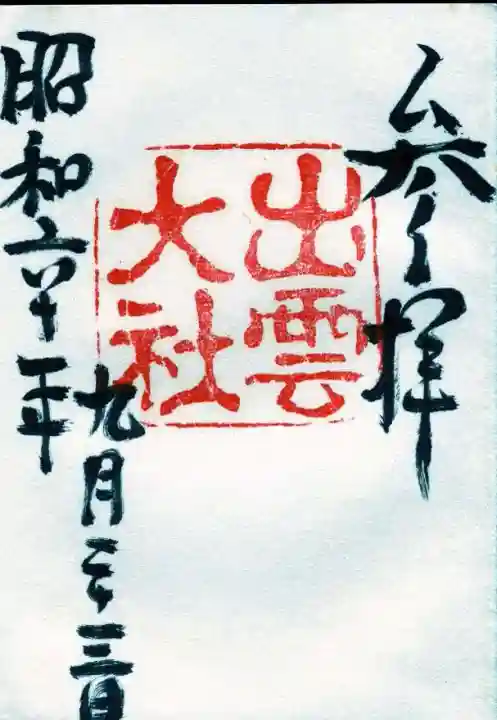 参拝
出雲
大社
昭和六十一年
九月二十三日